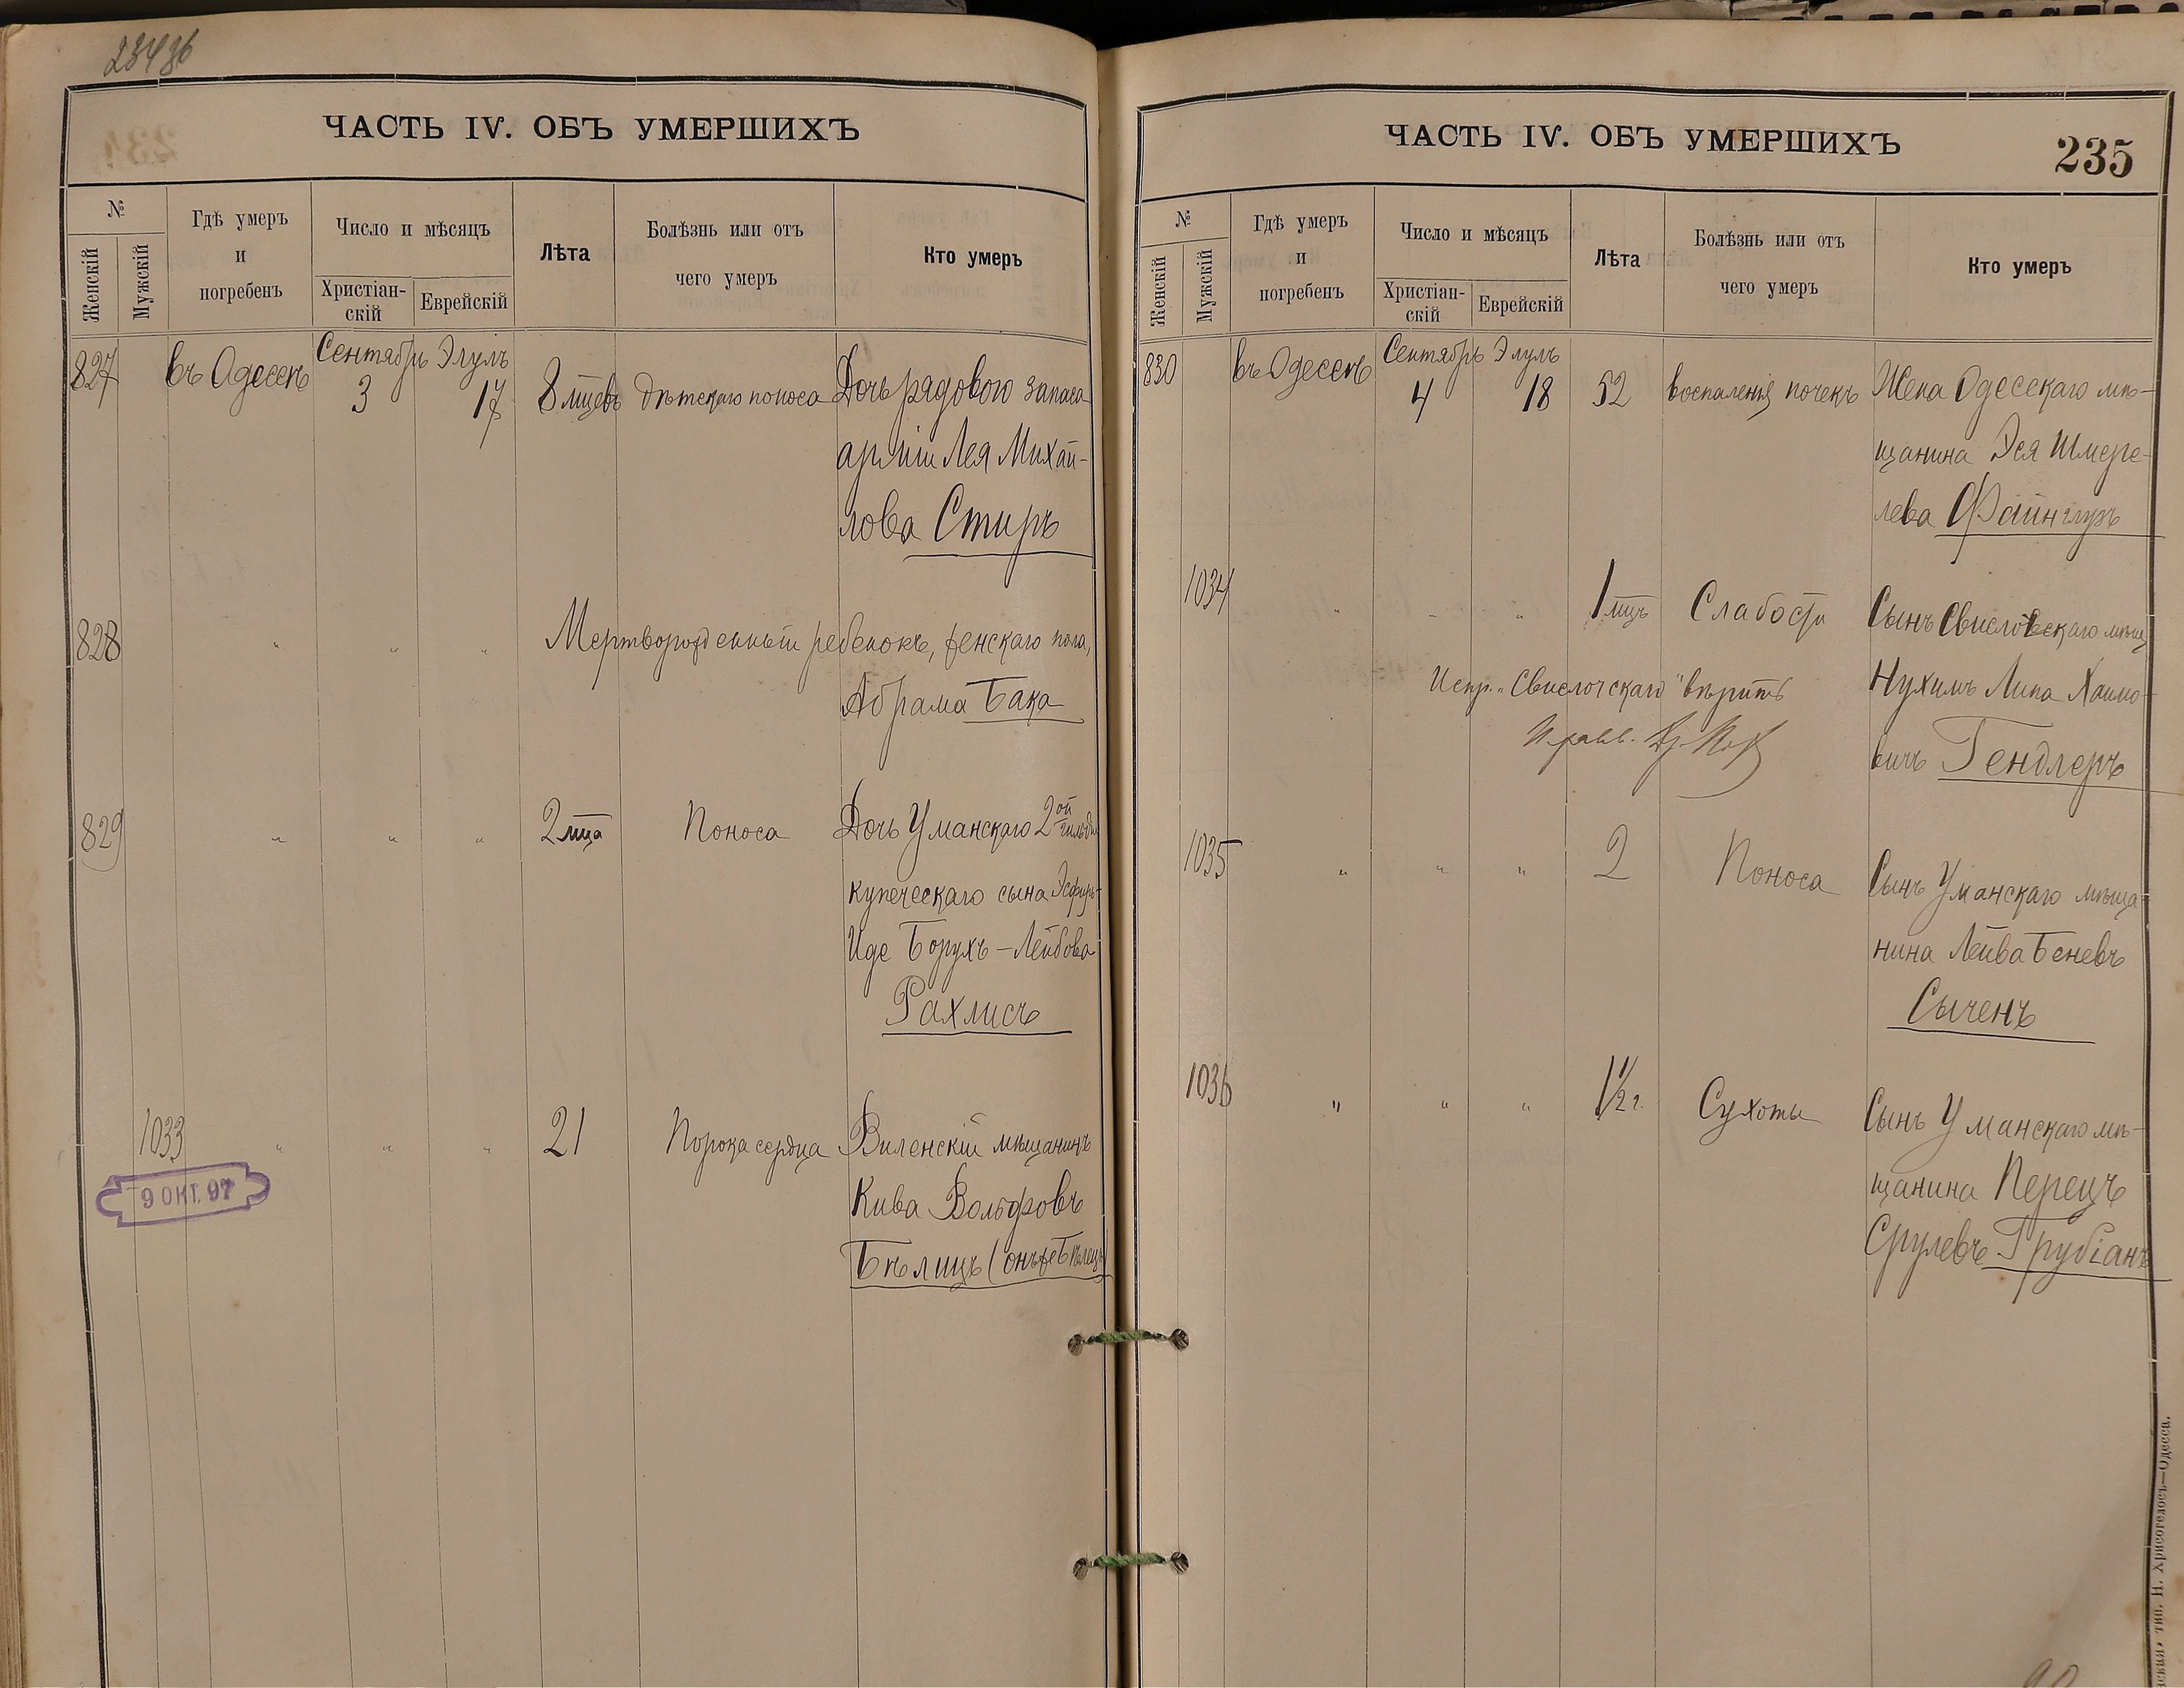 ЧАСТЬ IV. ОБЪ УМЕРШИХЪ
№
Женскій
Мужскій
Гдѣ умеръ
и
погребенъ
Число и мѣсяцъ
Христіан-
скій
Еврейскій
Лѣта
Болѣзнь или отъ
чего умеръ
Кто умеръ
Сентябрь Элулъ
827 въ Одессѣ 3 17 8 мцевъ дѣтскаго поноса Дочь рядового запаса
арміи Лея Михай-
лова Стиръ
828 " " " Мертворожденный ребенокъ, женскаго пола,
Абрама Бака
829 " " " 2 мца Поноса Дочь Уманскаго 2ой гильдіи
купеческаго сына Эсфирь-
Иде Борухъ-Лейбова
Рахлисъ
1033 " " " 21 Порока сердца Виленскій мѣщанинъ
9 ОКТ. 97
Кива Вольфовъ
Бѣлицъ (онъ же Бѣлецъ)
ЧАСТЬ IV. ОБЪ УМЕРШИХЪ
235
№
Женскій
Мужскій
Гдѣ умеръ
и
погребенъ
Число и мѣсяцъ
Христіан-
скій
Еврейскій
Лѣта
Болѣзнь или отъ
чего умеръ
Кто умеръ
Сентябрь Элулъ
830 въ Одессѣ 4 18 52 воспаленія почекъ Жена Одесскаго мѣ-
щанина Эся Шмере-
лева Файнглузъ
1034 " " " 1 мцъ Слабости Сынъ Свислочскаго мѣщ
Нухимъ Липа Хаимо-
Испр. "Свислочскаго" вѣрить
вичъ Гендлеръ
1035 " " " 2 Поноса Сынъ Уманскаго мѣща-
нина Лейва Беневъ
Сыченъ
1036 " " " 1 1/2 г. Сухоты Сынъ Уманскаго мѣ-
щанина Перецъ
Срулевъ Грубіанъ
тип. Н. Хрисогелосъ—Одесса.